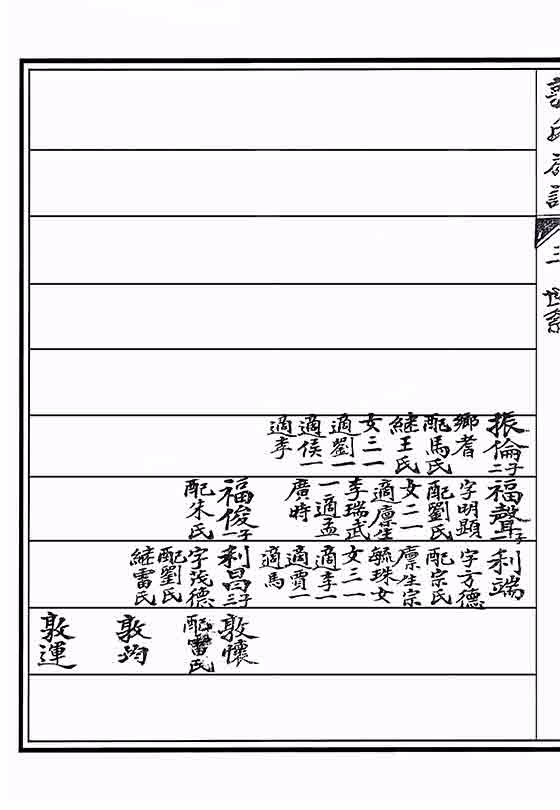 三 世系
振倫
二子
鄉耆
配馬氏
繼王氏
女三一
適劉一
適侯一
適李
福聲
二子
字明顯
配劉氏
女二一
適廪生
李瑞武
一適孟
廣時
福俊
一子
配朱氏
利端
字方德
配宗氏
廪生宗
毓珠女
女三一
適李一
適賈一
適馬
利昌
三子
字茂德
配劉氏
繼雷氏
敦懷
配雷氏
敦均
敦運